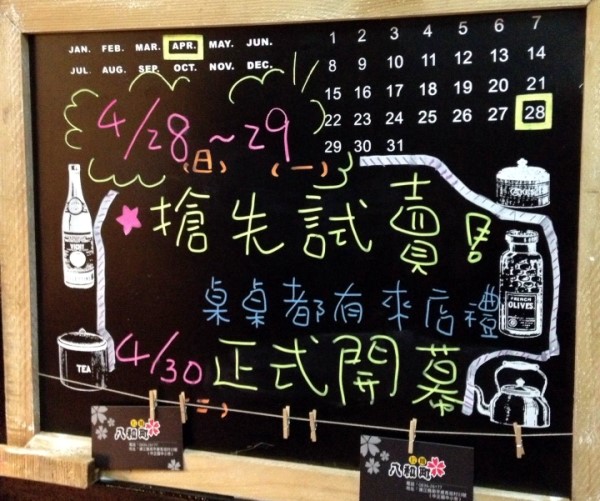 JAN. FEB. MAR. APR. MAY. JUN.
JUL. AUG. SEP. OCT. NOV. DEC.
1 2 3 4 5 6 7
8 9 10 11 12 13 14
15 16 17 18 19 20 21
22 23 24 25 26 27 28
29 30 31
4/28~29
(日) (一)
搶先試賣!
桌桌都有來店禮
4/30正式開幕
(二)
TEA
FRENCH
OLIVES
八和町
八和町